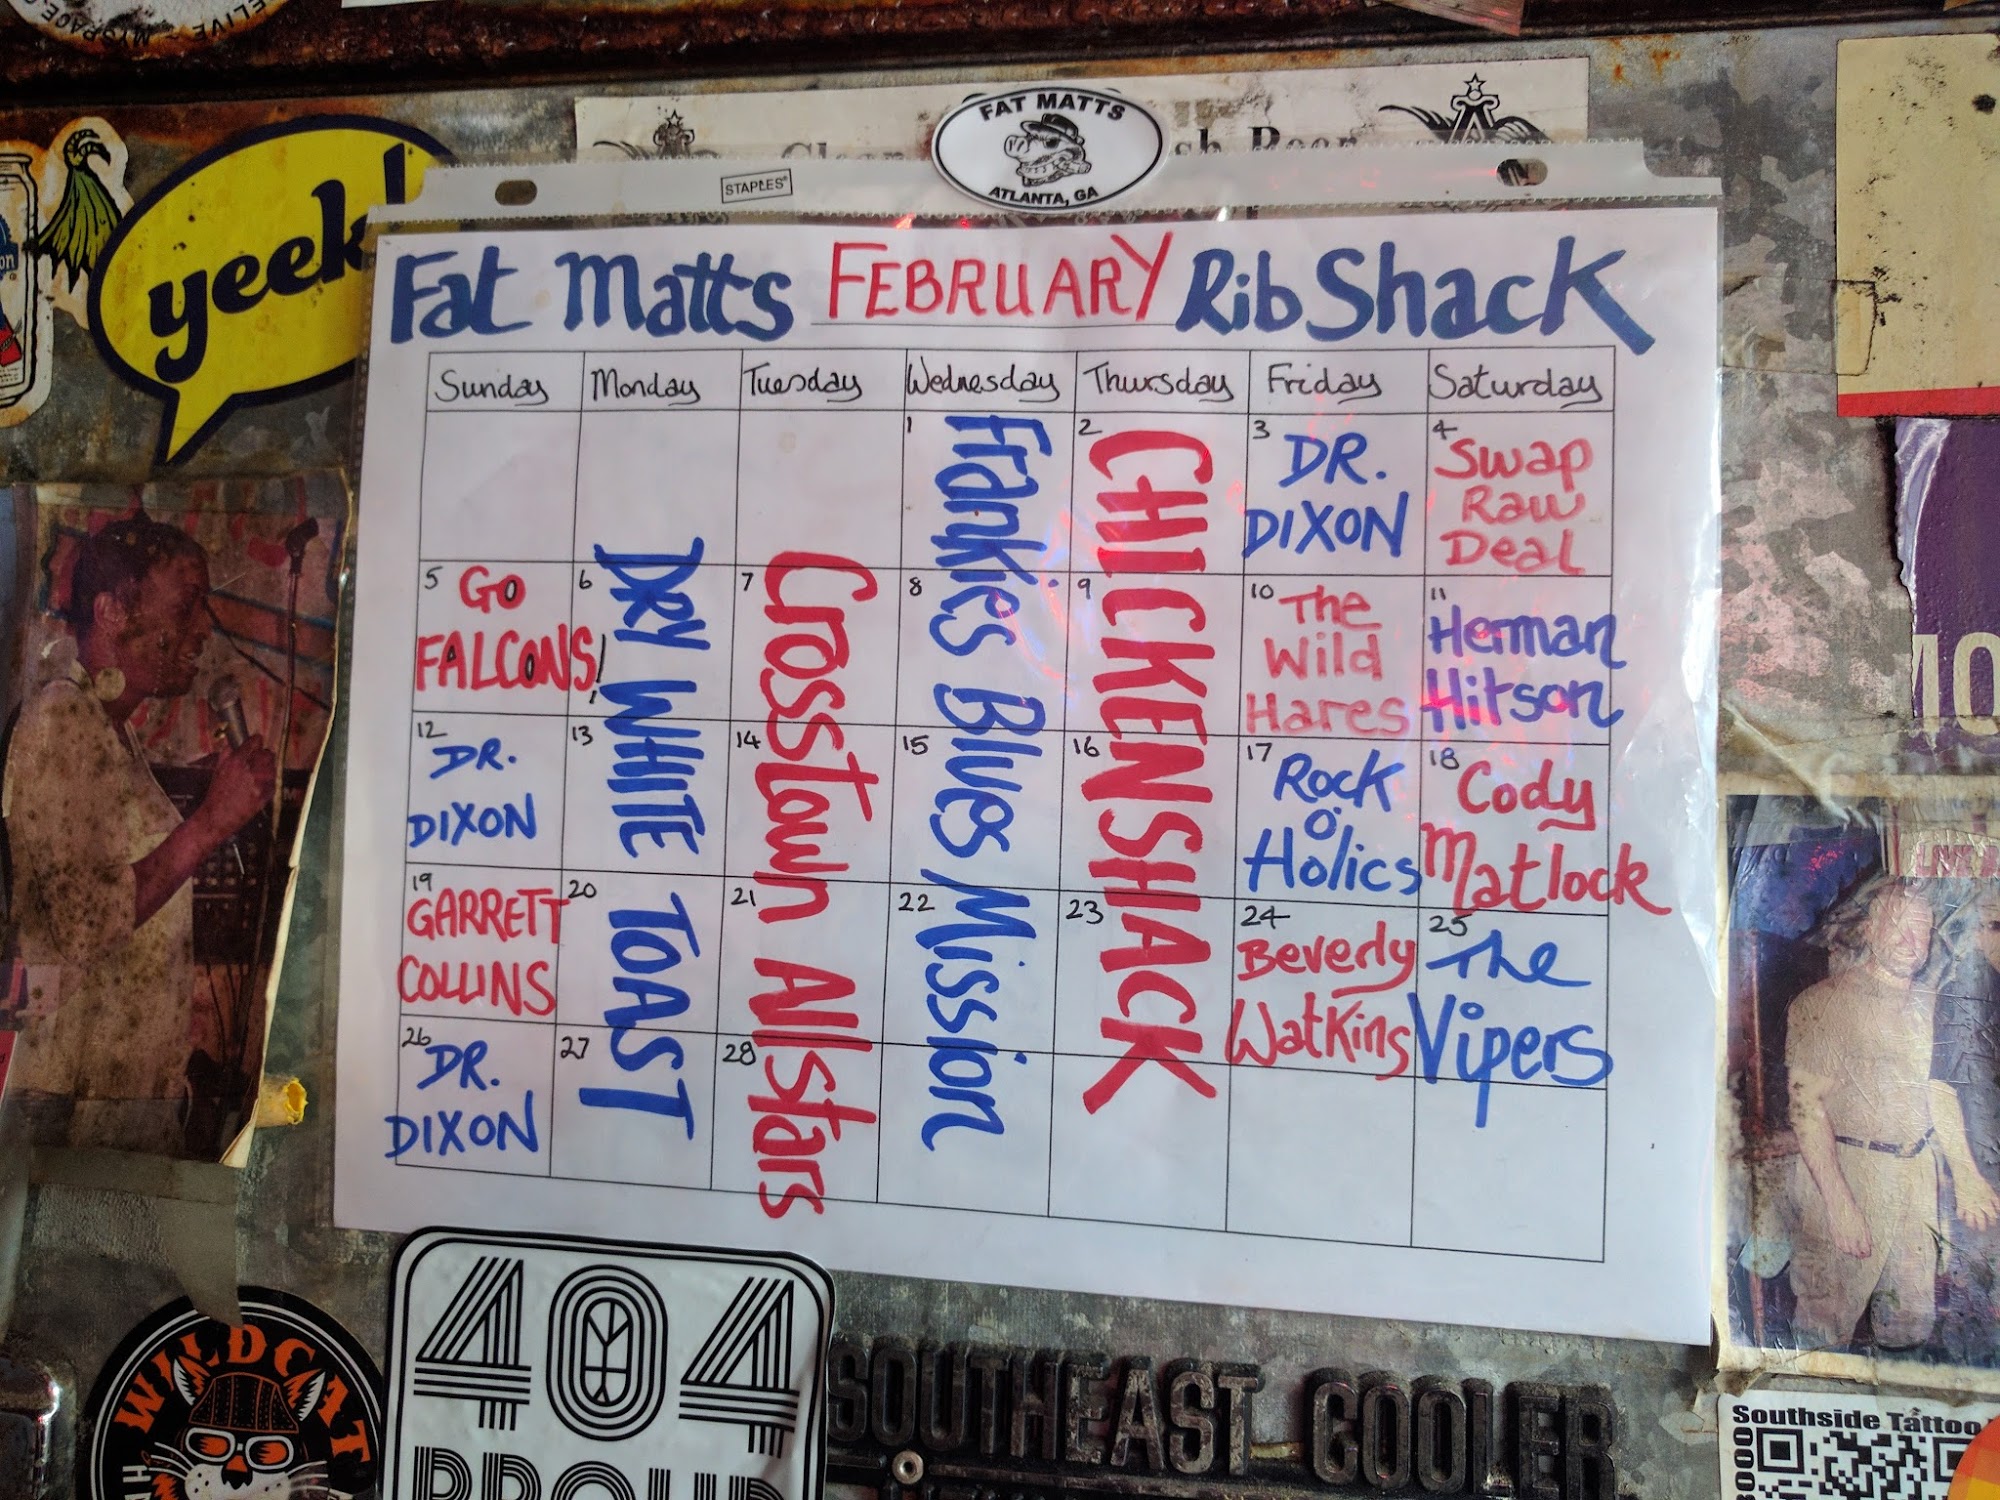 FAT MATTS
ATLANTA, GA
STAPLES
yeek!
Fat Matts FEBRUARY Rib Shack
Sunday Monday Tuesday Wednesday Thursday Friday Saturday
1 2 3 4
Frankies Blues Mission
CHICKENSHACK
DR.
DIXON
Swap
Raw
Deal
5 6 7 8 9 10 11
GO
FALCONS!
DRY WHITE TOAST
Crosstown Allstars
The
Wild
Hares
Herman
Hitson
12 13 14 15 16 17 18
DR.
DIXON
Rock
O'
Holics
Cody
Matlock
19 20 21 22 23 24 25
GARRETT
COLLINS
Beverly
Watkins
The
Vipers
26 27 28
DR.
DIXON
404
PROUD
WILDCAT
SOUTHEAST COOLER
Southside Tattoo